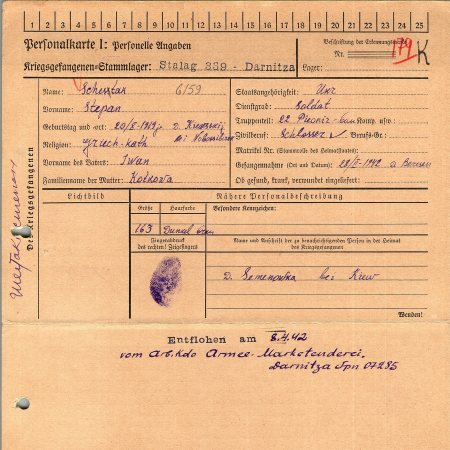 1 2 3 4 5 6 7 8 9 10 11 12 13 14 15 16 17 18 19 20 21 22 23 24 25
Personalkarte I: Personelle Angaben
Kriegsgefangenen-Stammlager: Stalag 339 - Darnitza
Beschriftung der Erkennungsmarke
Nr. 179 K
Lager:
Des Kriegsgefangenen
Name: Schestak 6/59
Vorname: Stepan
Geburtstag und -ort: 20/
Religion: griech-kath bei
Vorname des Vaters: Iwan
Familienname der Mutter: Kotkowa
Staatsangehörigkeit: Ukr
Dienstgrad: Soldat
Truppenteil: 22 Komp. usw.:
Zivilberuf: Schlosser Berufs-Gr.:
Matrikel Nr. (Stammrolle des Heimatstaates):
Gefangennahme (Ort und Datum):
Ob gesund, krank, verwundet eingeliefert:
Lichtbild
Nähere Personalbeschreibung
Größe Haarfarbe Besondere Kennzeichen:
163 Dunkel
Fingerabdruck
des rechten! Zeigefingers
Name und Anschrift der zu benachrichtigenden Person in der Heimat
des Kriegsgefangenen
D. Semenowka bei Kiew
Wenden!
Entflohen am 8.4.42
vom Arb.Kdo Armee-Marketenderei
Darnitza Fpn 07295